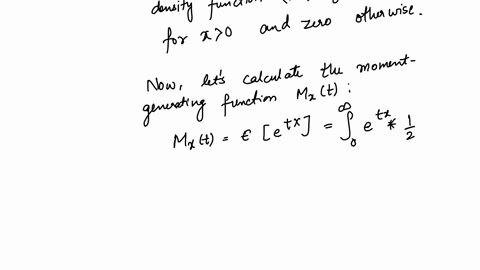 density function
for x>0 and zero otherwise.
Now, let's calculate the moment-
generating function Mx(t):
Mx(t) = E [e^{tx}] = ∫_0^∞ e^{tx} * 1/2